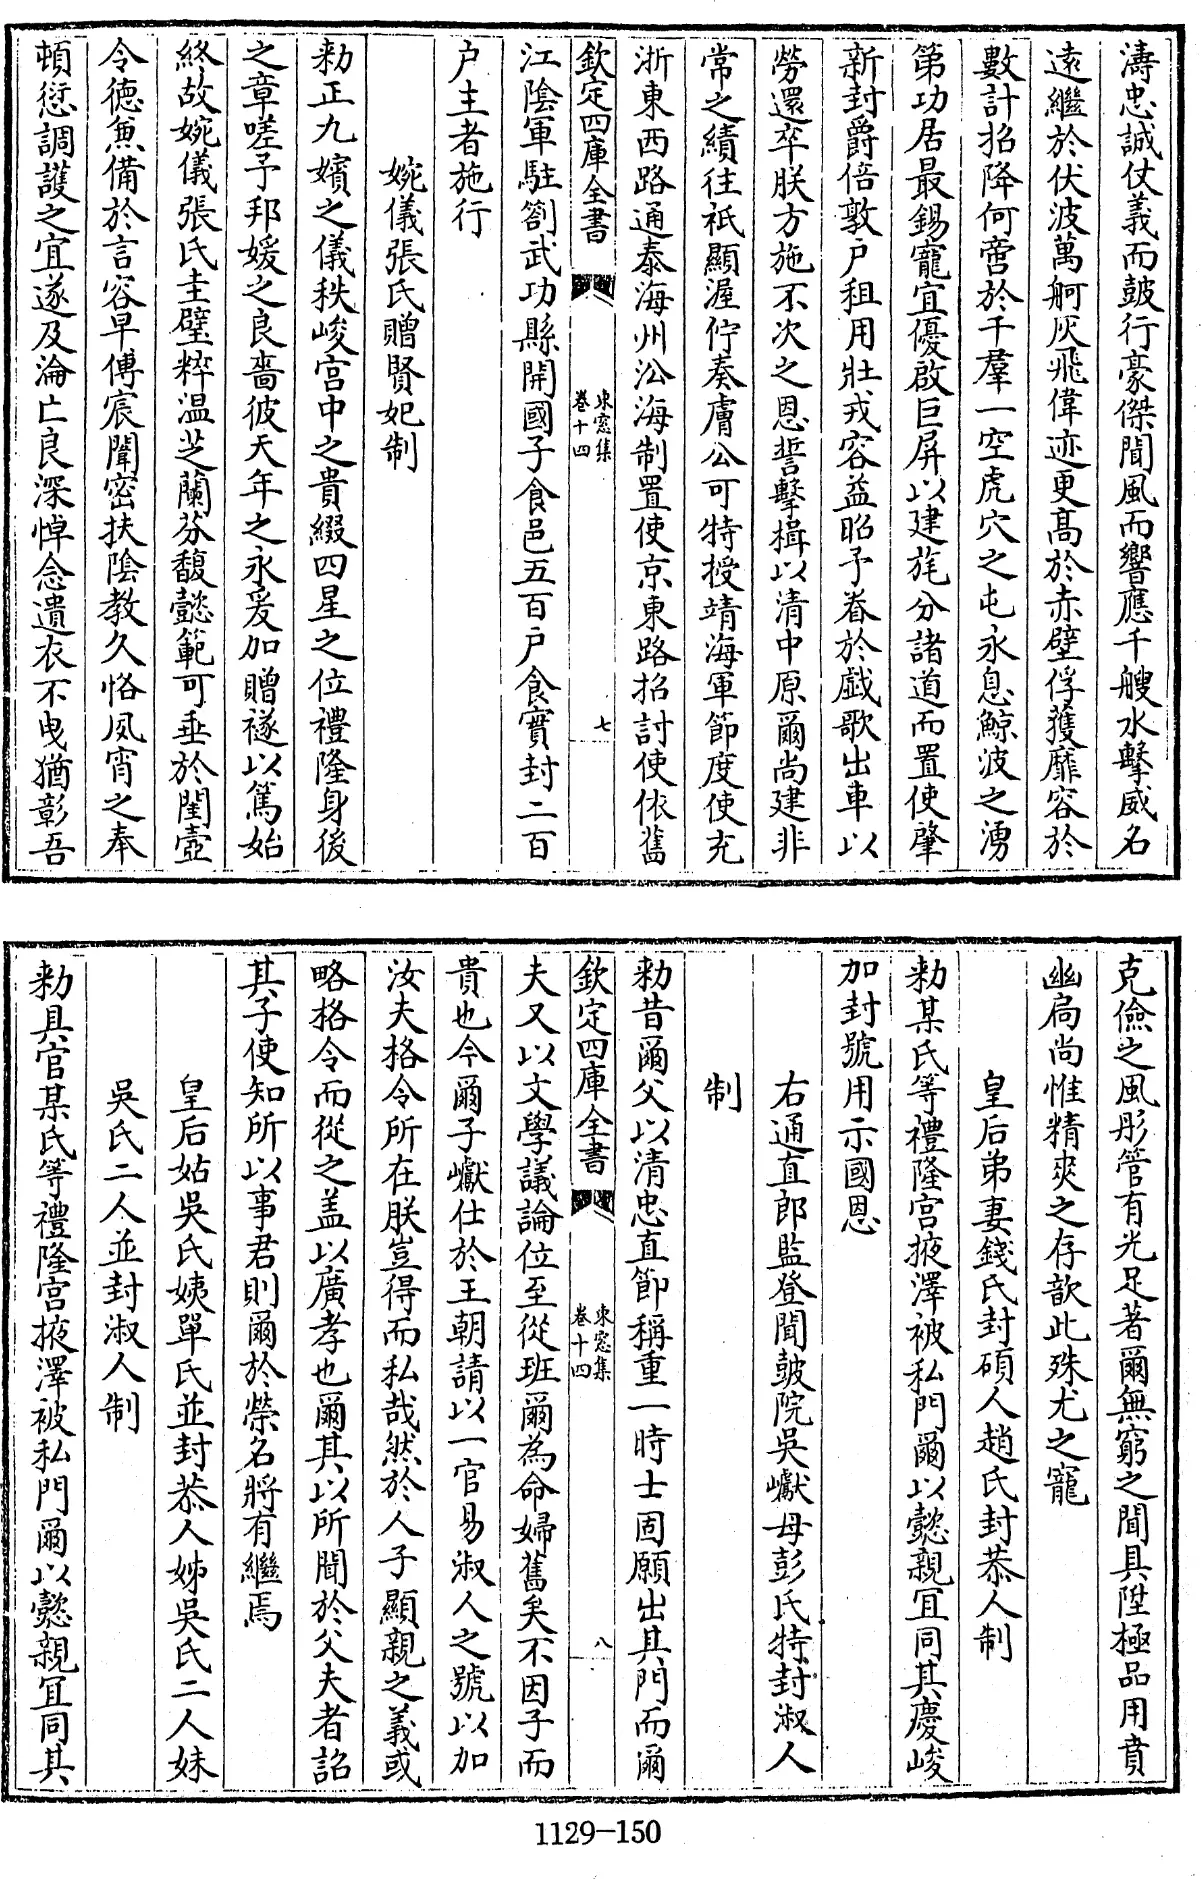 濤忠誠仗義而皷行豪傑聞風而響應千艘水擊威名
遠繼於伏波萬舸灰飛偉迹更髙於赤壁俘獲靡容於
數計招降何啻於千羣一空虎穴之屯永息鯨波之湧
第功居最錫寵宜優啟巨屏以建旄分諸道而置使肇
新封爵倍敦户租用壯戎容益昭予眷於戲歌出車以
勞還卒朕方施不次之恩誓擊楫以清中原爾尚建非
常之績往祇顯渥佇奏膚公可特授靖海軍節度使充
浙東西路通泰海州㳂海制置使京東路招討使依舊
欽定四庫全書
東窓集
卷十四
七
江陰軍駐劄武功縣開國子食邑五百户食實封二百
户主者施行
婉儀張氏贈賢妃制
勅正九嬪之儀秩峻宫中之貴綴四星之位禮隆身後
之章嗟予邦媛之良嗇彼天年之永爰加贈襚以篤始
終故婉儀張氏圭璧粹温芝蘭芬馥懿範可垂於閨壼
令徳兼備於言容早傅宸闈密扶陰教久恪夙宵之奉
頓愆調護之宜遂及淪亡良深悼念遺衣不曳猶彰吾
克儉之風彤管有光足著爾無窮之聞具陞極品用賁
幽扃尚惟精爽之存歆此殊尤之寵
皇后弟妻錢氏封碩人趙氏封恭人制
勅某氏等禮隆宫掖澤被私門爾以懿親宜同其慶峻
加封號用示國恩
右通直郎監登聞皷院吳巘母彭氏特封淑人
制
勅昔爾父以清忠直節稱重一時士固願出其門而爾
欽定四庫全書
東窓集
卷十四
八
夫又以文學議論位至從班爾為命婦舊矣不因子而
貴也今爾子巘仕於王朝請以一官易淑人之號以加
汝夫格令所在朕豈得而私哉然於人子顯親之義或
略格令而從之盖以廣孝也爾其以所聞於父夫者詔
其子使知所以事君則爾於榮名將有繼焉
皇后姑吳氏姨單氏並封恭人姊吳氏二人妹
吳氏二人並封淑人制
勅具官某氏等禮隆宫掖澤被私門爾以懿親宜同其
1129-150